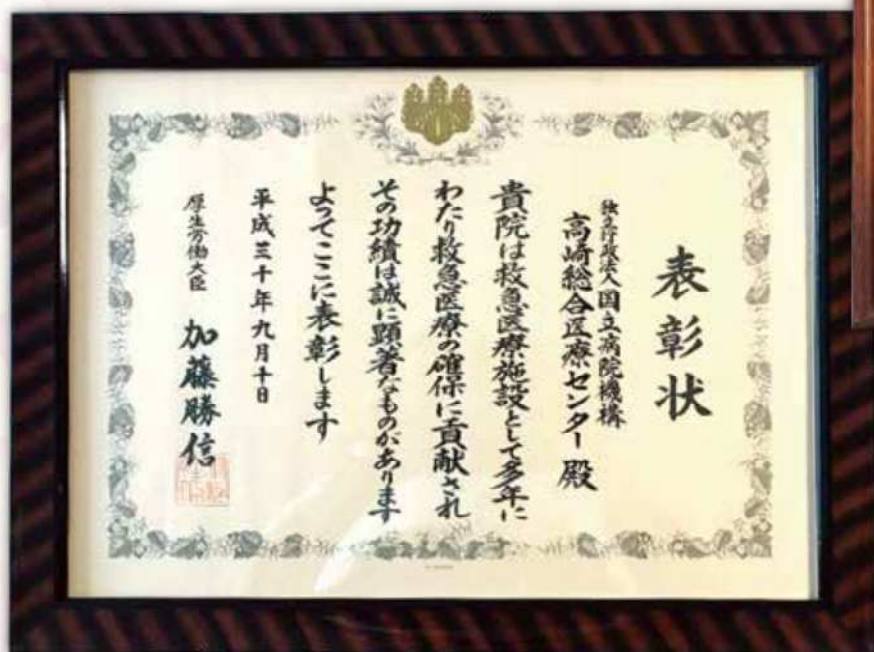 表彰状
独立行政法人国立病院機構
高崎総合医療センター 殿
貴院は救急医療施設として多年に
わたり救急医療の確保に貢献され
その功績は誠に顕著なものがあります
よってここに表彰します
平成三十年九月十日
厚生労働大臣 加藤勝信